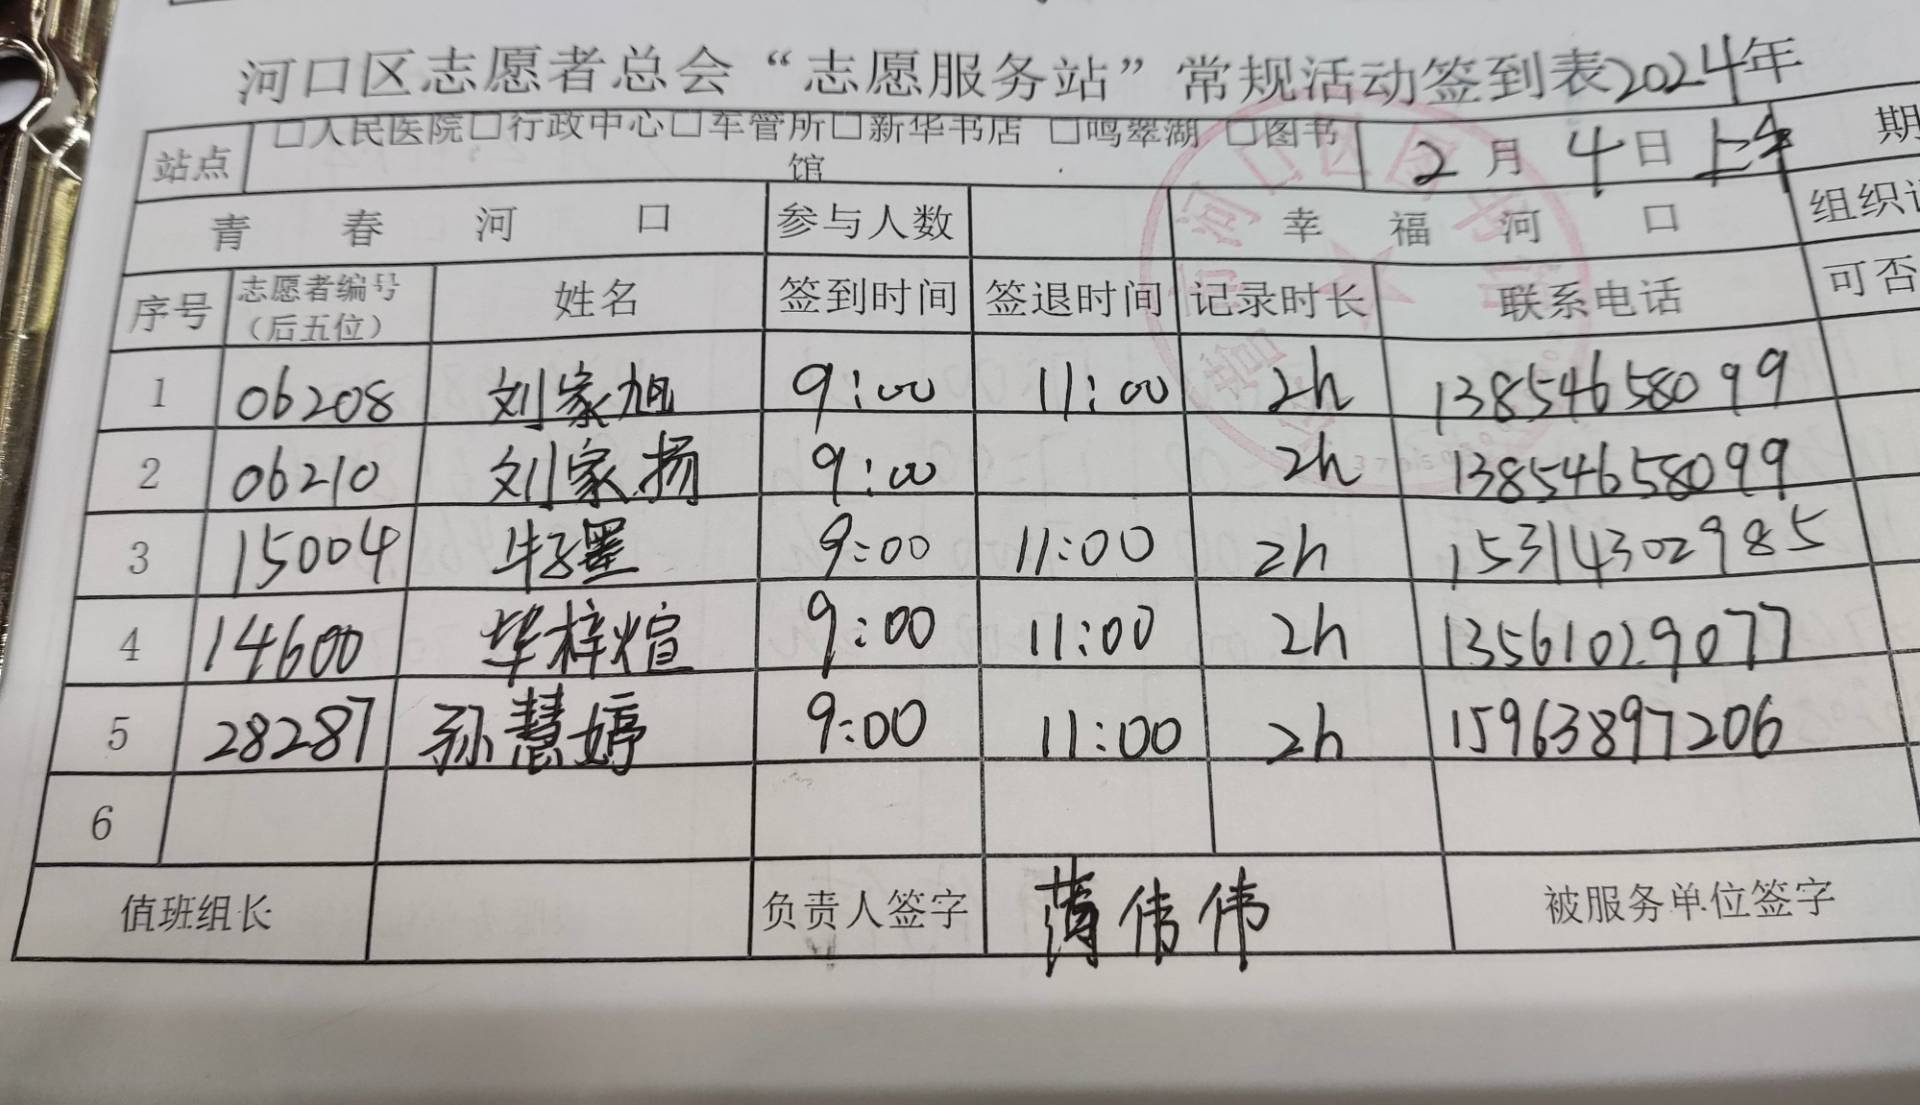 河口区志愿者总会“志愿服务站”常规活动签到表2024年
站点 □人民医院□行政中心□车管所□新华书店 □鸣翠湖 □图书馆 2月4日上午 期
青春河口 参与人数 幸福河口 组织
序号 志愿者编号（后五位） 姓名 签到时间 签退时间 记录时长 联系电话 可否
1 06208 刘家旭 9:00 11:00 2h 13854658099
2 06210 刘家扬 9:00 2h 13854658099
3 15004 9:00 11:00 2h 15314302985
4 14600 毕梓煊 9:00 11:00 2h 13561029077
5 28287 孙慧婷 9:00 11:00 2h 15963897206
6
值班组长 负责人签字 蒲伟伟 被服务单位签字